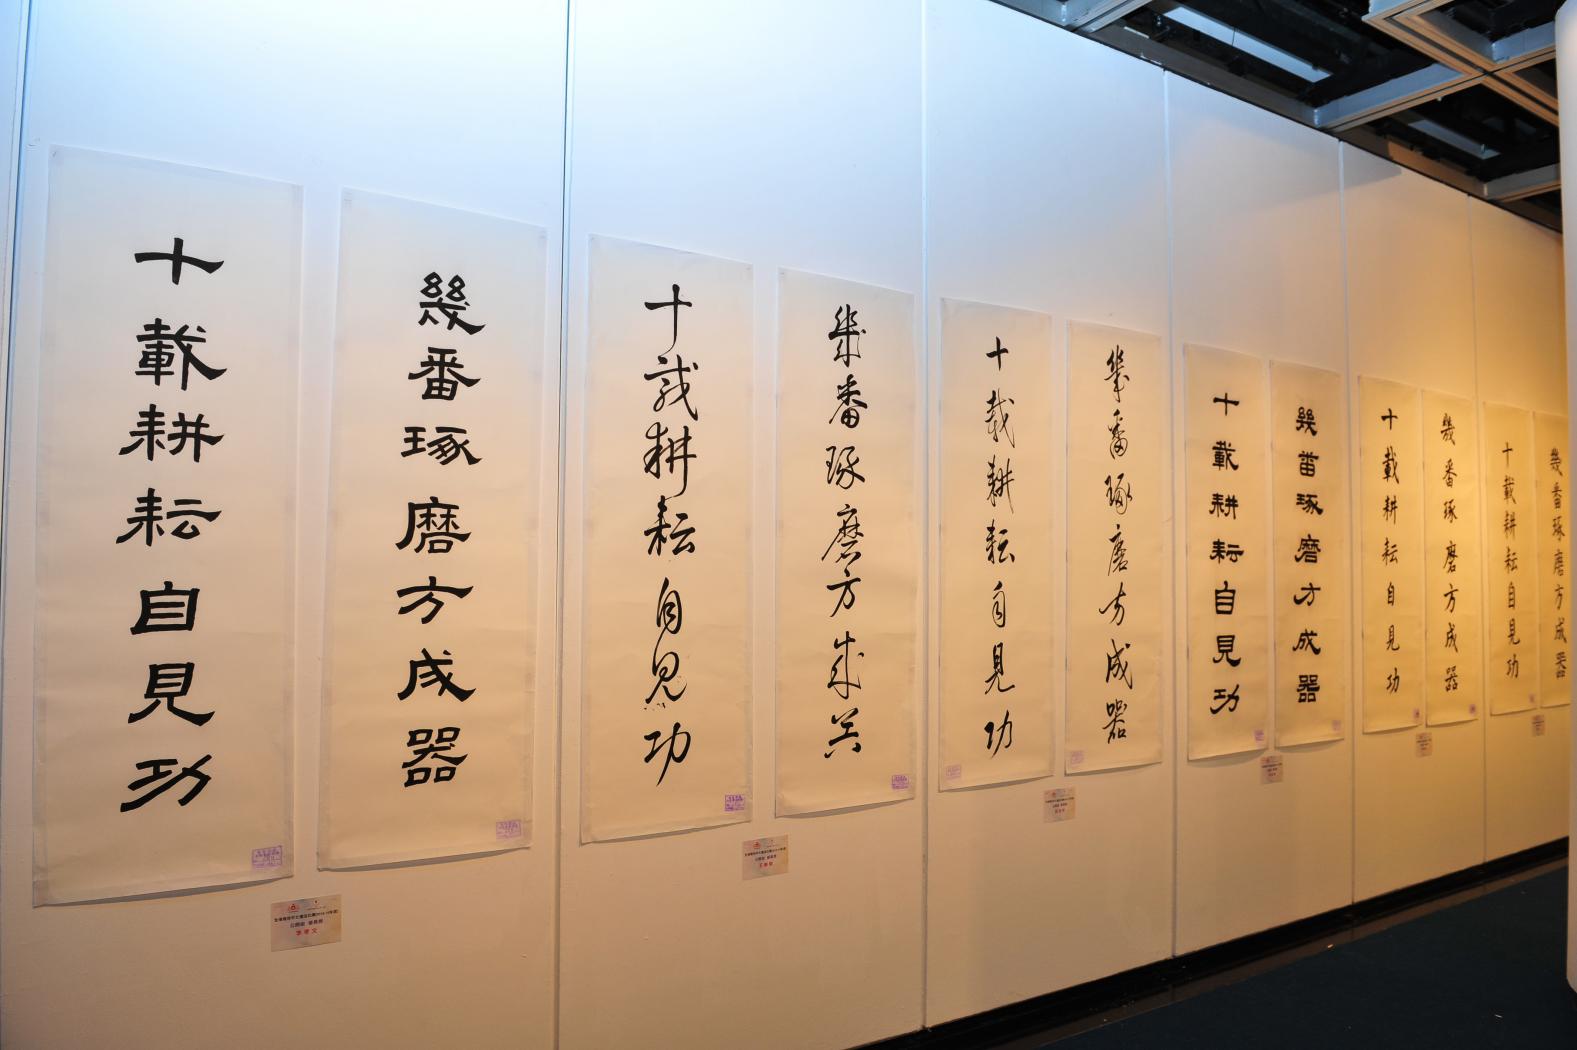 十載耕耘自見功
幾番琢磨方成器
十載耕耘自見功
幾番琢磨方成器
十載耕耘自見功
幾番琢磨方成器
十載耕耘自見功
幾番琢磨方成器
十載耕耘自見功
幾番琢磨方成器
十載耕耘自見功
幾番琢磨方成器